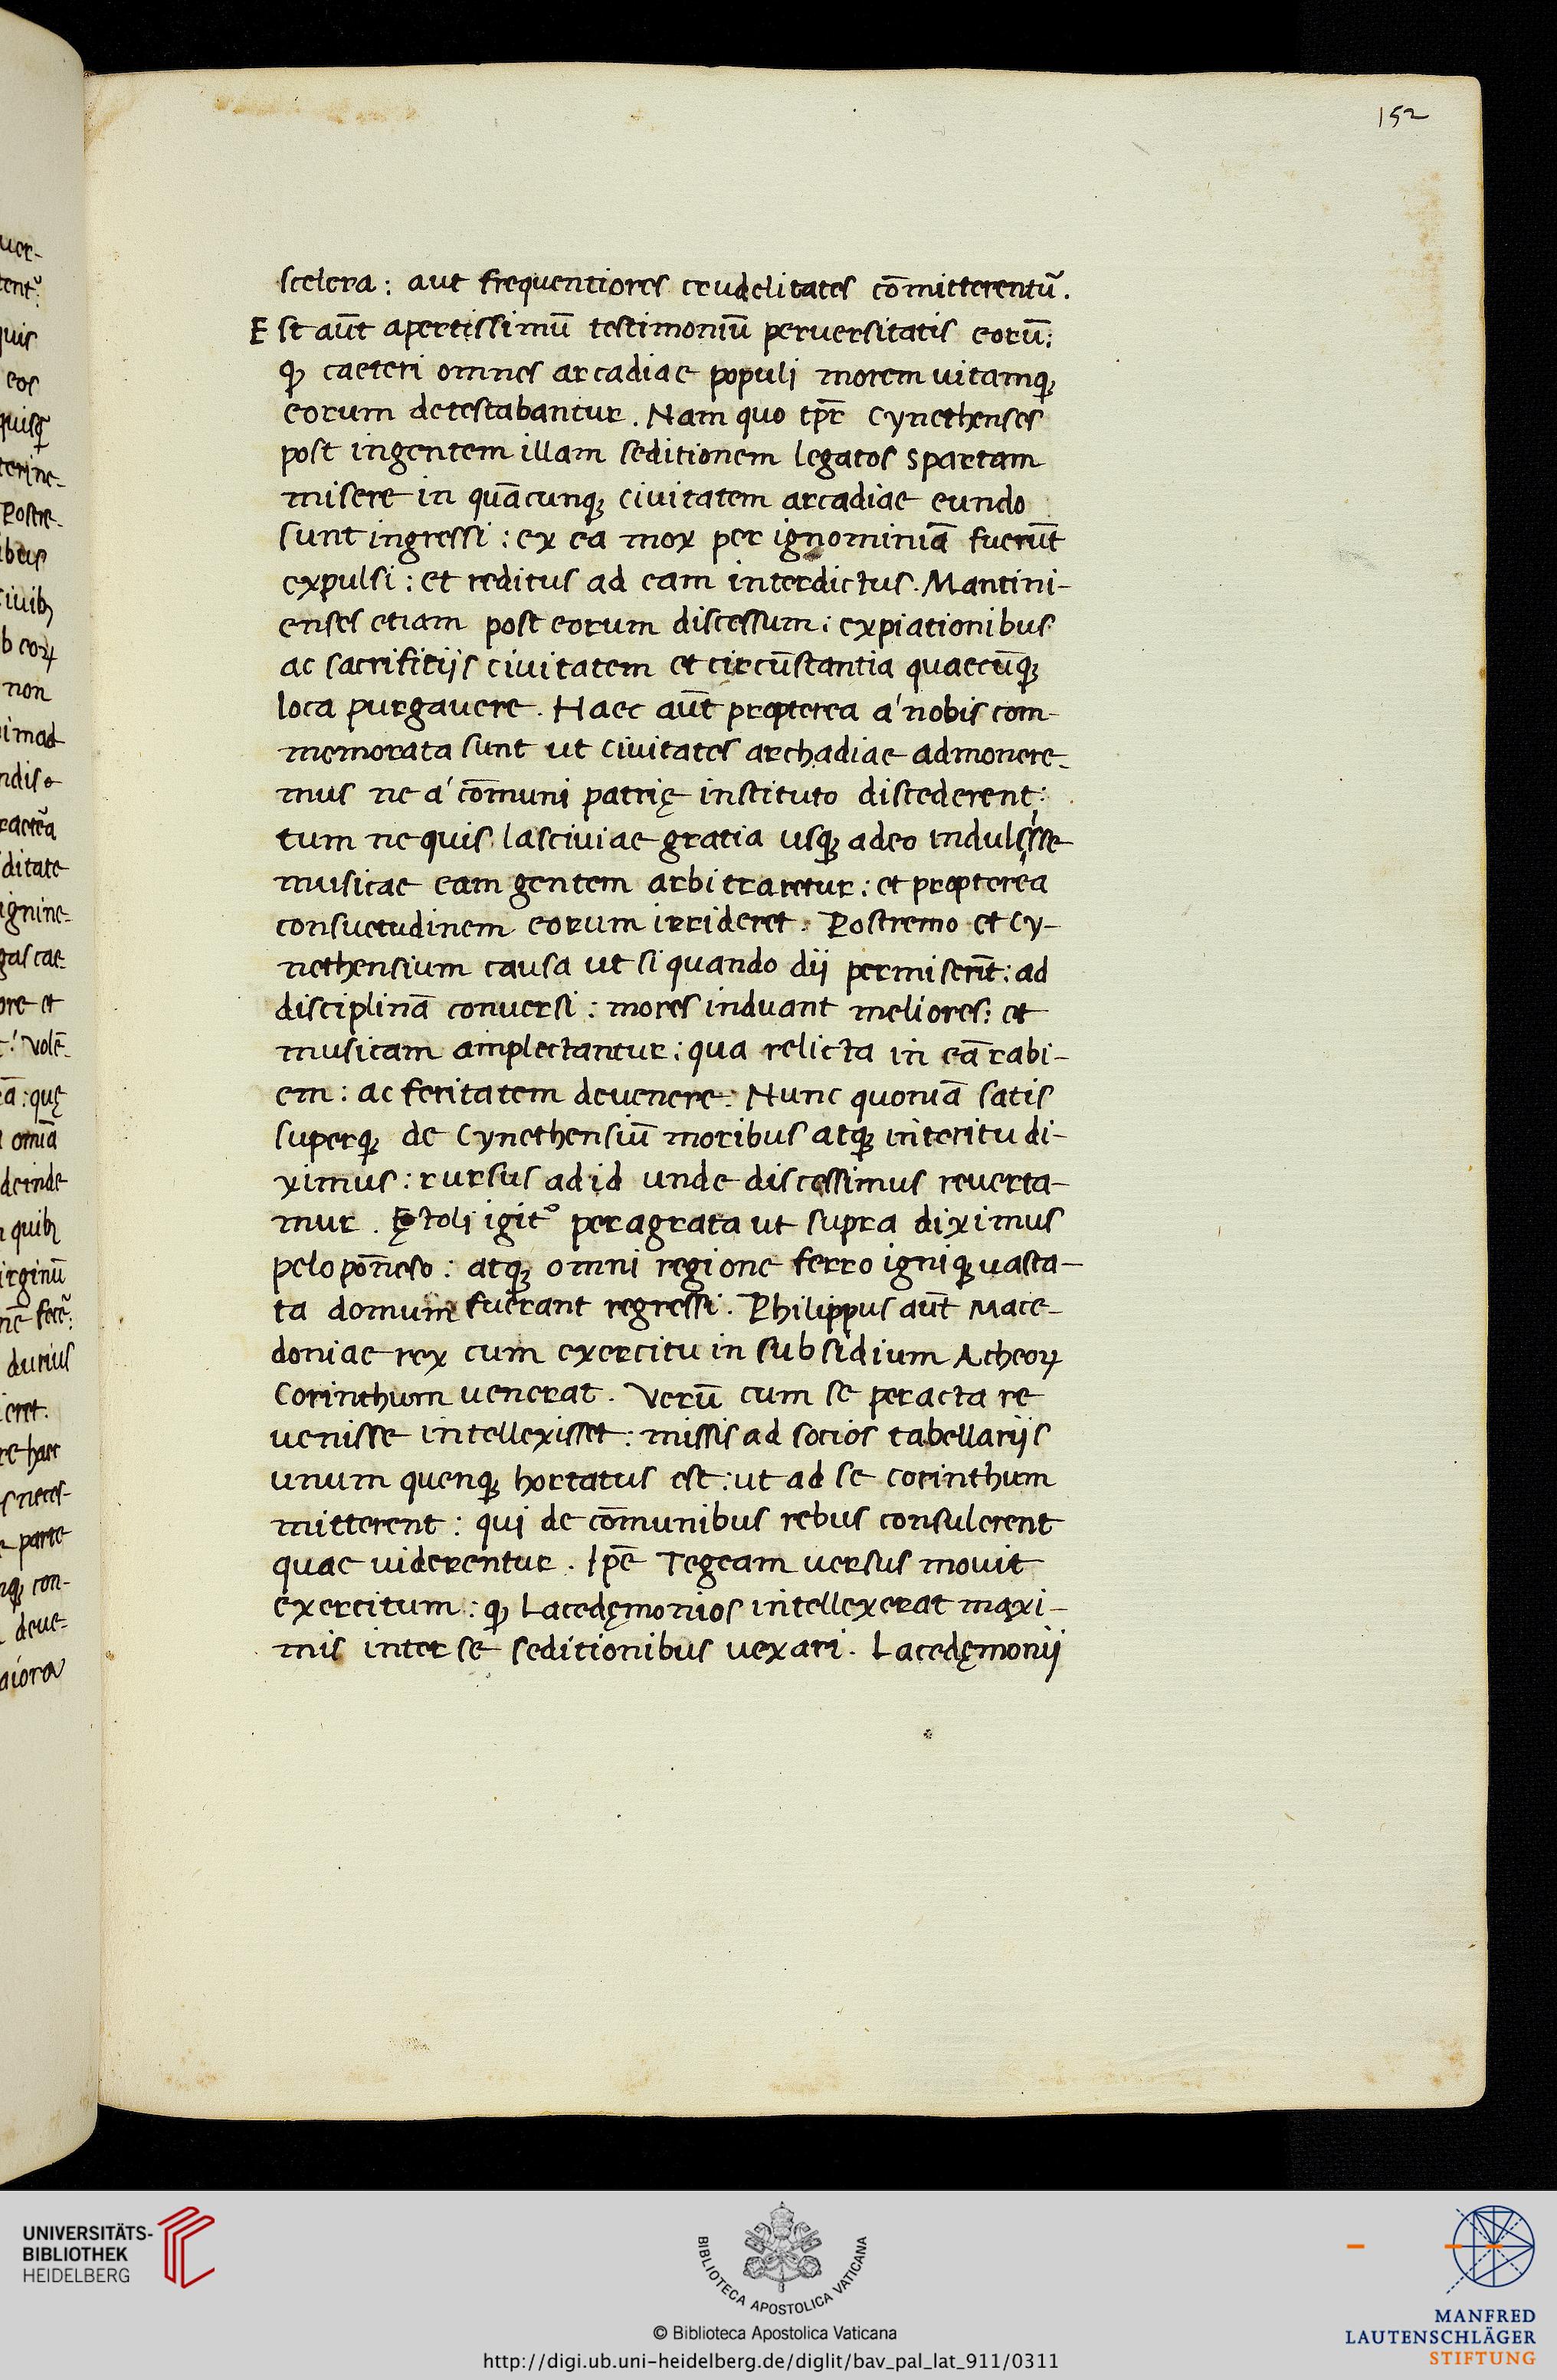 152
scelera : aut frequentiores crudelitates cōmitterentũ.
Est aūt apertissimū testimoniū peruersitatis eorū:
ꝙ caeteri omnes arcadiae populi morem uitamqꝫ
eorum detestabantur. Nam quo tp̄r Cynethenses
post ingentem illam seditionem legatos spartam
misere in quācunqꝫ ciuitatem arcadiae eundo
sunt ingressi : ex ea mox per ignominiā fuerūt
expulsi : et reditus ad eam interdictus. Mantini-
enses etiam post eorum discessum : expiationibus
ac sacrifitiis ciuitatem et circūstantia quaecūqꝫ
loca purgauere. Haec aūt propterea á nobis com-
memorata sunt ut ciuitates archadiae admonere-
mus ne á cōmuni patrię instituto discederent :
tum ne quis lasciuiae gratia usqꝫ adeo indulsisse
musicae eam gentem arbitraretur : et propterea
consuetudinem eorum irrideret. Postremo et Cy-
nethensium causa ut si quando dii permiserīt : ad
disciplinā conuersi : mores induant meliores : et
musicam amplectantur : qua relicta in eā rabi-
em : ac feritatem deuenere. Nunc quoniā satis
superqꝫ de Cynethensiū moribus atqꝫ interitu di-
ximus : rursus ad id unde discessimus reuerta-
mur. Ętoli igit᷑ peragrata ut supra diximus
peloponneso : atqꝫ omni regione ferro igniqꝫ uasta-
ta domum fuerant regressi. Philippus aūt Mace-
doniae rex cum exercitu in subsidium Acheoꝝ
Corinthum uenerat. Verū cum se peracta re
uenisse intellexisset : missis ad socios tabellariis
unum quenqꝫ hortatus est : ut ad se corinthum
mitterent : qui de cōmunibus rebus consulerent
quae uiderentur. Ip̄e Tegeam uersus mouit
exercitum : ꝙ Lacedęmonios intellexerat maxi-
mis inter se seditionibus uexari. Lacedęmonii
UNIVERSITÄTS-
BIBLIOTHEK
HEIDELBERG
BIBLIOTECA APOSTOLICA VATICANA
© Biblioteca Apostolica Vaticana
http://digi.ub.uni-heidelberg.de/diglit/bav_pal_lat_911/0311
MANFRED
LAUTENSCHLÄGER
STIFTUNG